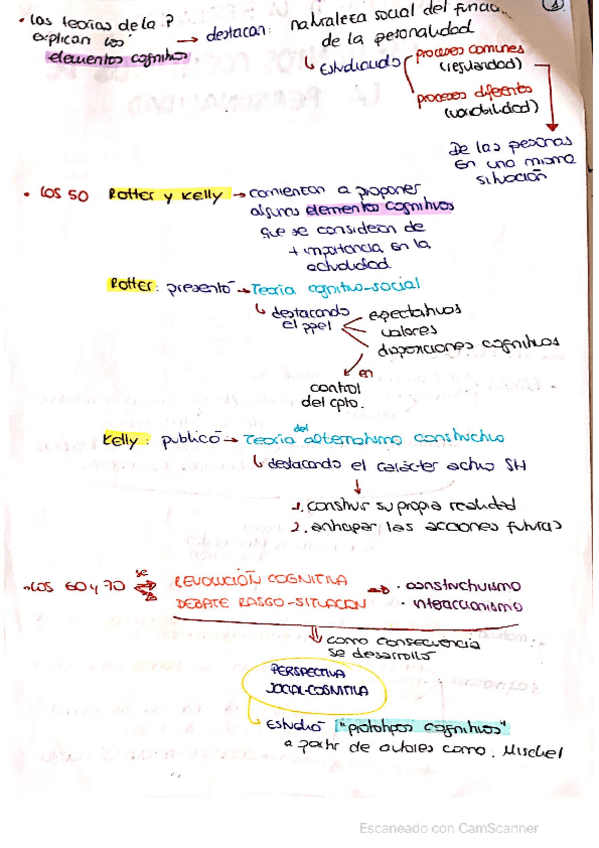 • Las teorías de la P
explican los
elementos cognitivos
→ destacan:
naturaleza social del funcio.
de la personalidad
↳ Estudiando
procesos comunes
(regularidad)
procesos diferentes
(variabilidad)
De las personas
en una misma
situación
• Los 50 Rotter y Kelly → comienzan a proponer
algunos elementos cognitivos
que se consideran de
+ importancia en la
actualidad.
Rotter: presentó → Teoría cognitivo-social
↳ destacando
el ppel
expectativas
valores
disposiciones cognitivas
en
control
del cpto.
Kelly: publicó → Teoría del alternativismo constructivo
↳ destacando el carácter activo SH
1. construir su propia realidad
2. anticipar las acciones futuras
• Los 60 y 70 se
REVOLUCIÓN COGNITIVA
DEBATE RASGO-SITUACIÓN
• constructivismo
• interaccionismo
como consecuencia
se desarrolló
PERSPECTIVA
SOCIAL-COGNITIVA
↳ Estudió "prototipos cognitivos"
a partir de autores como: Mischel
Escaneado con CamScanner